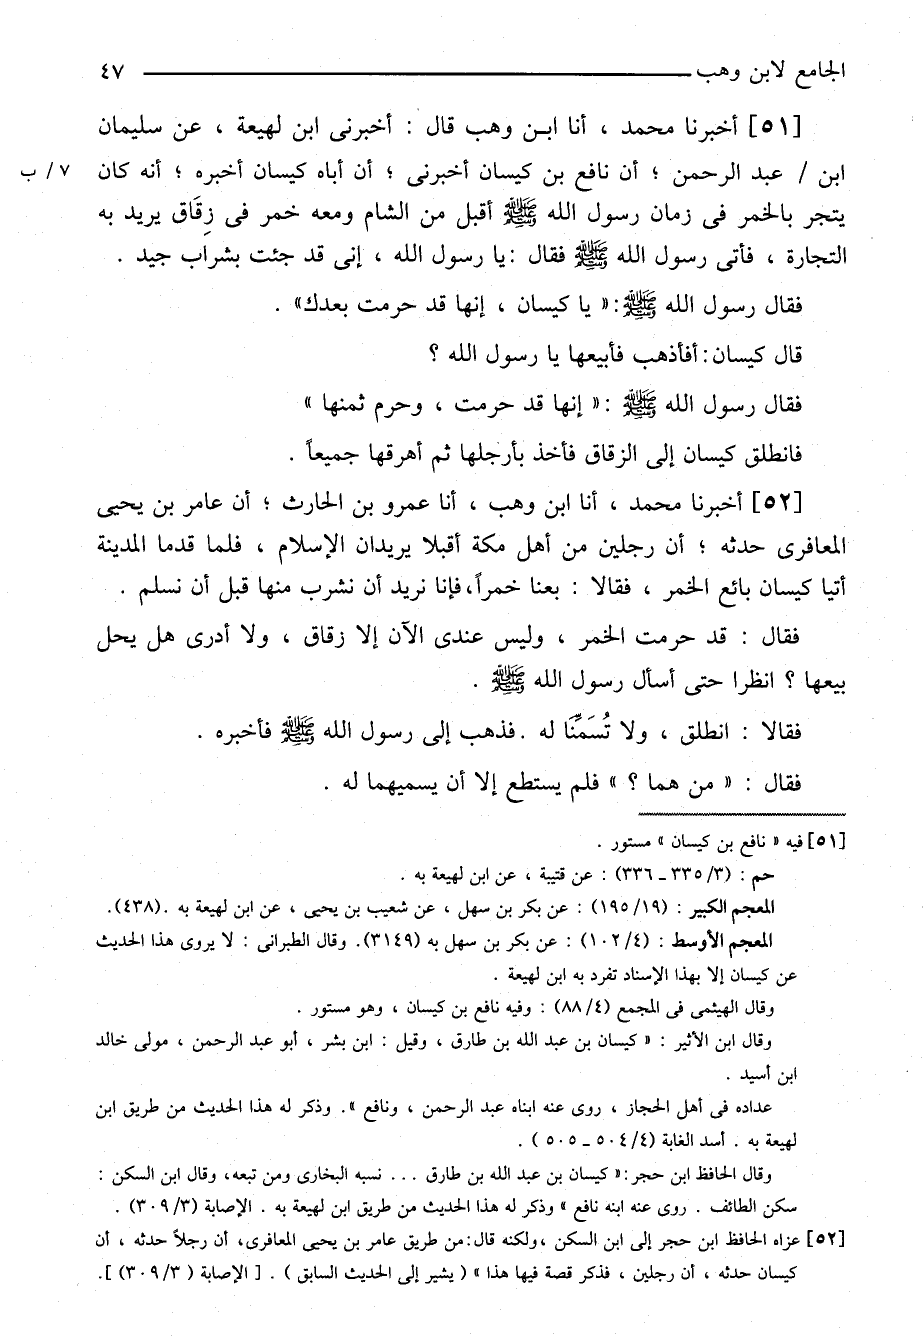 الجامع لابن وهب ٤٧
[٥١] أخبرنا محمد ، أنا ابن وهب قال : أخبرنى ابن لهيعة ، عن سليمان
ابن / عبد الرحمن ؛ أن نافع بن كيسان أخبرنى ؛ أن أباه كيسان أخبره ؛ أنه كان ٧/ ب
يتجر بالخمر فى زمان رسول الله ﷺ أقبل من الشام ومعه خمر فى زِقَاق يريد به
التجارة ، فأتى رسول الله ﷺ فقال :يا رسول الله ، إنى قد جئت بشراب جيد .
فقال رسول الله ﷺ:« يا كيسان ، إنها قد حرمت بعدك» .
قال كيسان:أفأذهب فأبيعها يا رسول الله ؟
فقال رسول الله ﷺ :« إنها قد حرمت ، وحرم ثمنها »
فانطلق كيسان إلى الزقاق فأخذ بأرجلها ثم أهرقها جميعاً .
[٥٢] أخبرنا محمد ، أنا ابن وهب ، أنا عمرو بن الحارث ؛ أن عامر بن يحيى
المعافرى حدثه ؛ أن رجلين من أهل مكة أقبلا يريدان الإسلام ، فلما قدما المدينة
أتيا كيسان بائع الخمر ، فقالا : بعنا خمراً،فإنا نريد أن نشرب منها قبل أن نسلم .
فقال : قد حرمت الخمر ، وليس عندى الآن إلا زقاق ، ولا أدرى هل يحل
بيعها ؟ انظرا حتى أسأل رسول الله ﷺ .
فقالا : انطلق ، ولا تُسَمِّنَا له .فذهب إلى رسول الله ﷺ فأخبره .
فقال : « من هما ؟ » فلم يستطع إلا أن يسميهما له .
[٥١] فيه « نافع بن كيسان » مستور .
حم : (٣/ ٣٣٥ ـ ٣٣٦) : عن قتيبة ، عن ابن لهيعة به .
المعجم الكبير : (١٩/ ١٩٥) : عن بكر بن سهل ، عن شعيب بن يحيى ، عن ابن لهيعة به .(٤٣٨).
المعجم الأوسط : (٤/ ١٠٢) : عن بكر بن سهل به (٣١٤٩). وقال الطبرانى : لا يروى هذا الحديث
عن كيسان إلا بهذا الإسناد تفرد به ابن لهيعة .
وقال الهيثمى فى المجمع (٤/ ٨٨) : وفيه نافع بن كيسان ، وهو مستور .
وقال ابن الأثير : « كيسان بن عبد الله بن طارق ، وقيل : ابن بشر ، أبو عبد الرحمن ، مولى خالد
ابن أسيد .
عداده فى أهل الحجاز ، روى عنه ابناه عبد الرحمن ، ونافع ». وذكر له هذا الحديث من طريق ابن
لهيعة به . أسد الغابة (٤/ ٥٠٤ ـ ٥٠٥ ) .
وقال الحافظ ابن حجر:« كيسان بن عبد الله بن طارق ... نسبه البخارى ومن تبعه، وقال ابن السكن :
سكن الطائف . روى عنه ابنه نافع » وذكر له هذا الحديث من طريق ابن لهيعة به . الإصابة (٣/ ٣٠٩) .
[٥٢] عزاه الحافظ ابن حجر إلى ابن السكن ،ولكنه قال:من طريق عامر بن يحيى المعافرى، أن رجلاً حدثه ، أن
كيسان حدثه ، أن رجلين ، فذكر قصة فيها هذا » ( يشير إلى الحديث السابق ) . [ الإصابة ( ٣/ ٣٠٩) ].